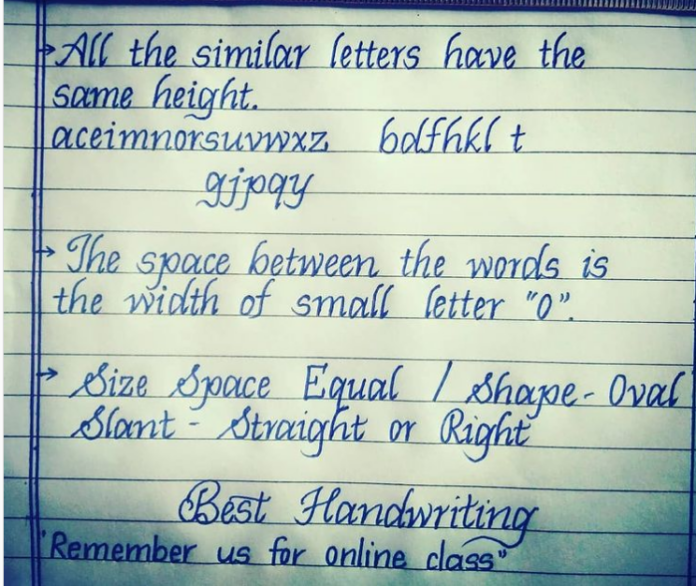 →All the similar letters have the
same height.
aceimnorsuvwxz bdfhkl t
gjpqy
→ The space between the words is
the width of small letter "o".
→ Size Space Equal / Shape - Oval
Slant - Straight or Right
Best Handwriting
"Remember us for online class"